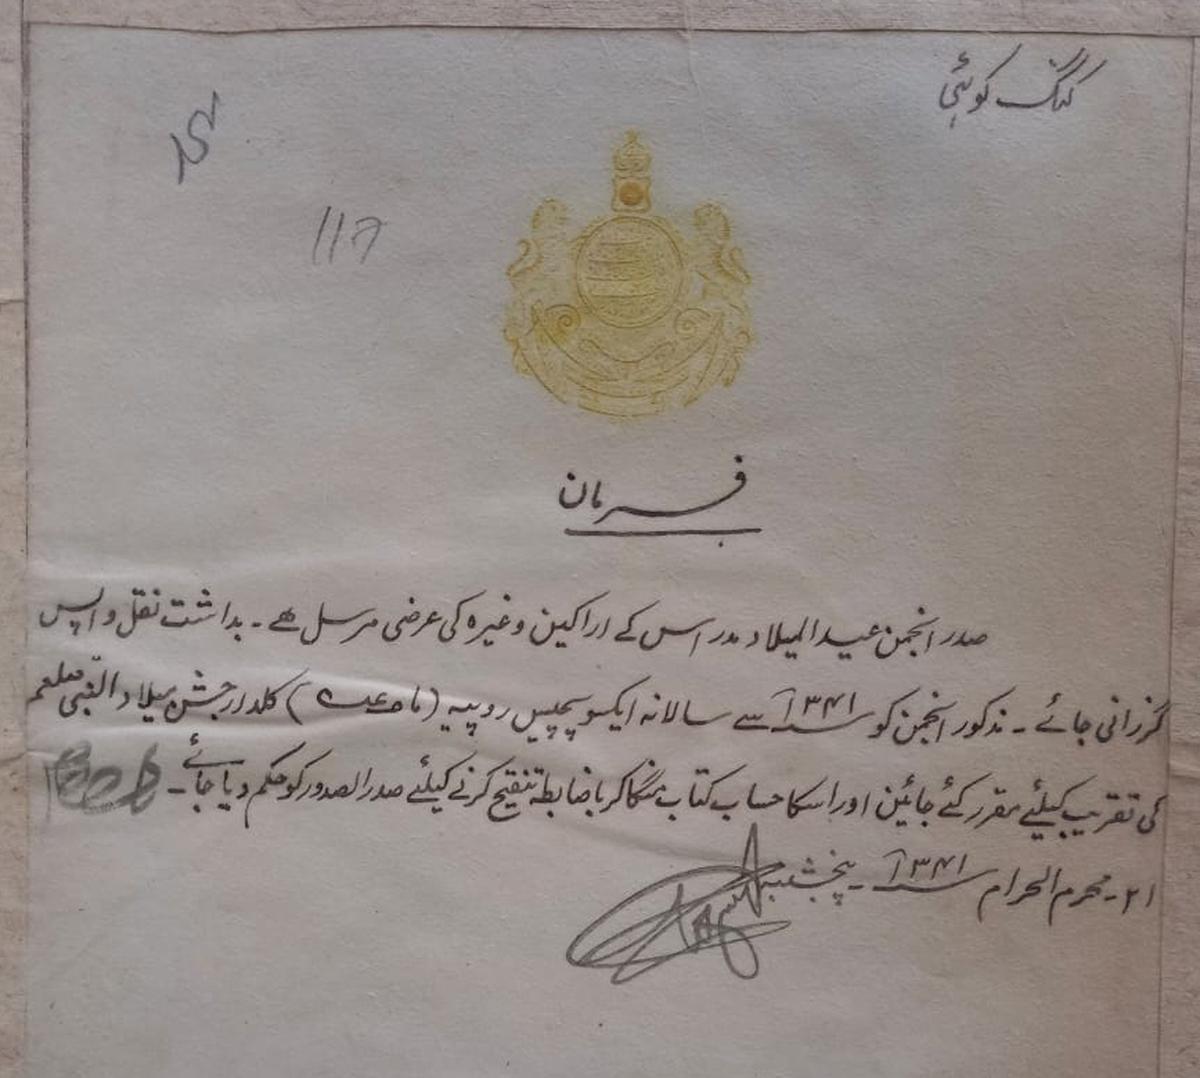 کنگ کوٹھی
117
فرمان
صدر انجمن عید المیلاد مدراس کے اراکین وغیرہ کی عرضی مرسل ھے ۔ بداشت نقل واپس
گزرانی جائے ۔ مذکور انجمن کو ۱۳۴۱ سے سالانہ ایکسو پچپیس روپیہ ( ) کلدار جشن میلاد النبی صلعم
کی تقریب کیلئے مقرر کئے جائین اور اسکا حساب کتاب منگا کر باضابطہ تنقیح کرنے کیلئے صدر الصدور کو حکم دیا جائے ۔
۲۱ ۔ محرم الحرام ۱۳۴۱ ۔ پنجشنبہ